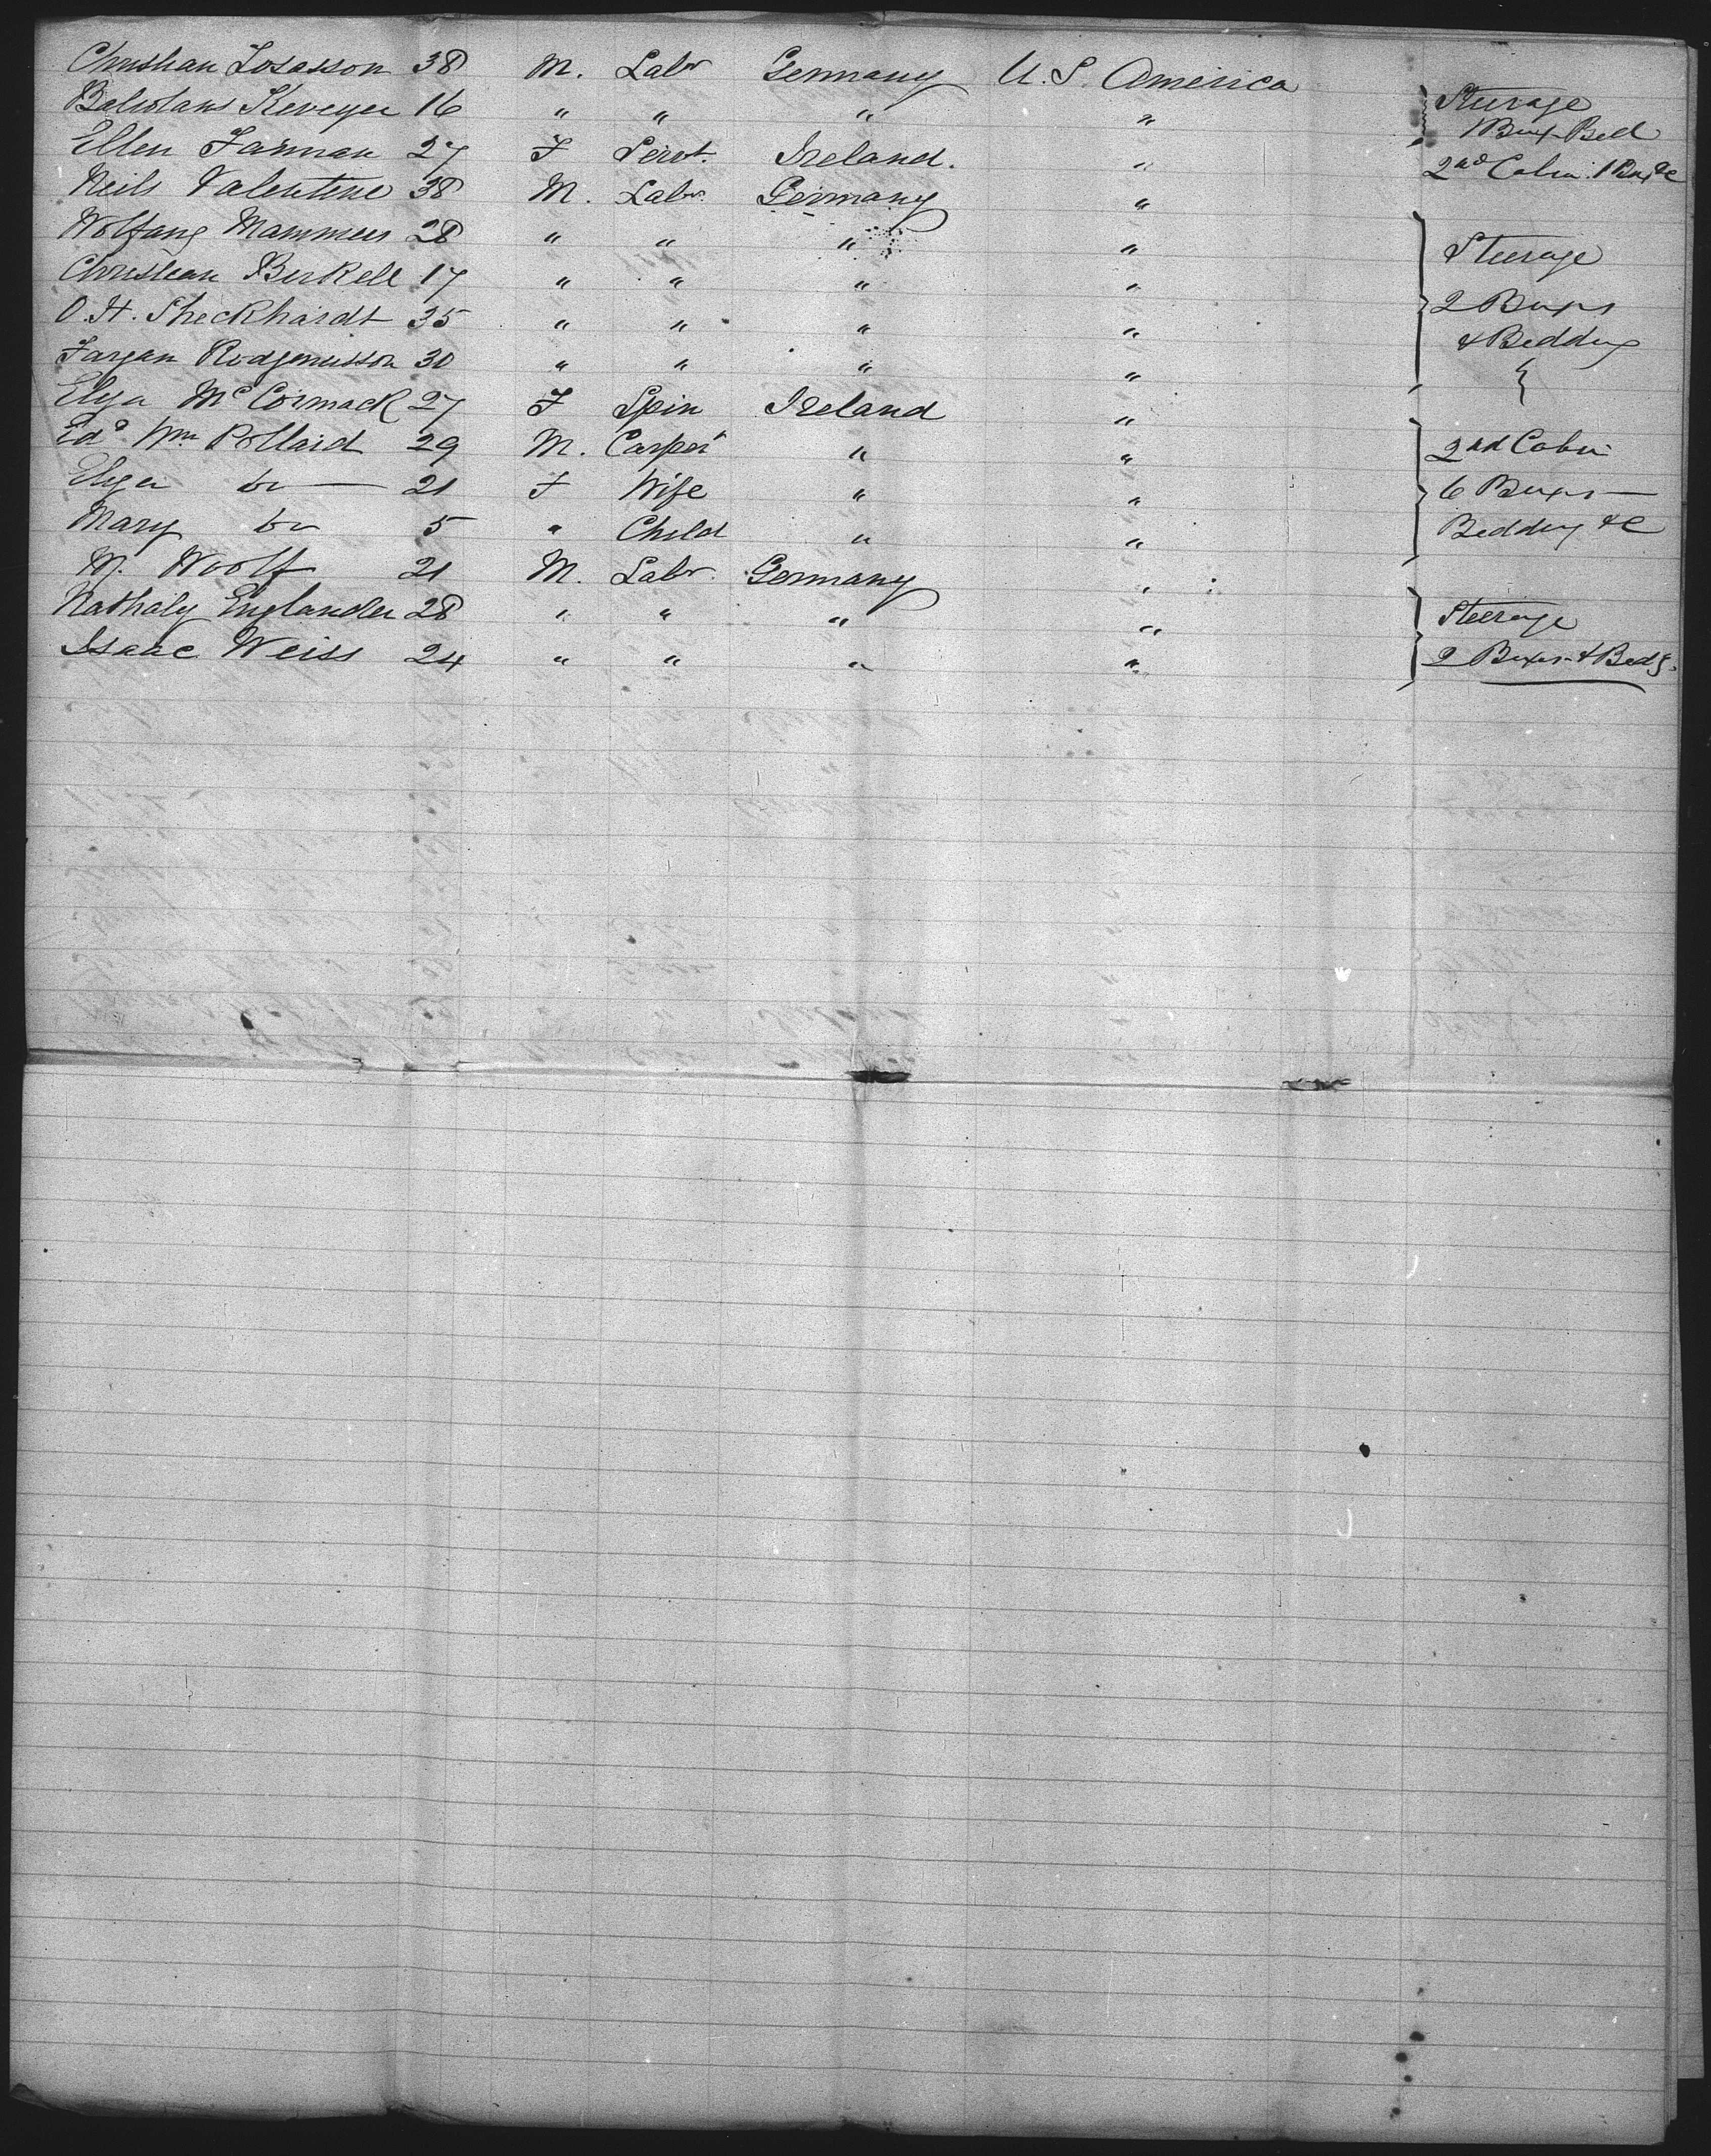 Christian Losasson 38 M. Labr Germany U. S. America
16 " " " " Steerage
Ellen Farman 27 F Servt. Ireland. " 1 Box Bed
Neils Valentine 38 M. Labr. Germany " 2nd Cabin 1 Box &c
Wolfang Mammers 28 " " " "
Christian Berkell 17 " " " " Steerage
O. H. Sheckhardt 35 " " " " 2 Boxes
30 " " " " & Bedding
Elya McCormack 27 F Spin Ireland "
Edd Wm Pollard 29 M. Carpet " " 2nd Cabin
Elyza Do 21 F Wife " " 6 Boxes
Mary Do 5 " Child " " Bedding &c
M. Woolf 21 M. Labr. Germany "
Nathaly Englander 28 " " " " Steerage
Isaac Weiss 24 " " " " 2 Boxes & Bedg.